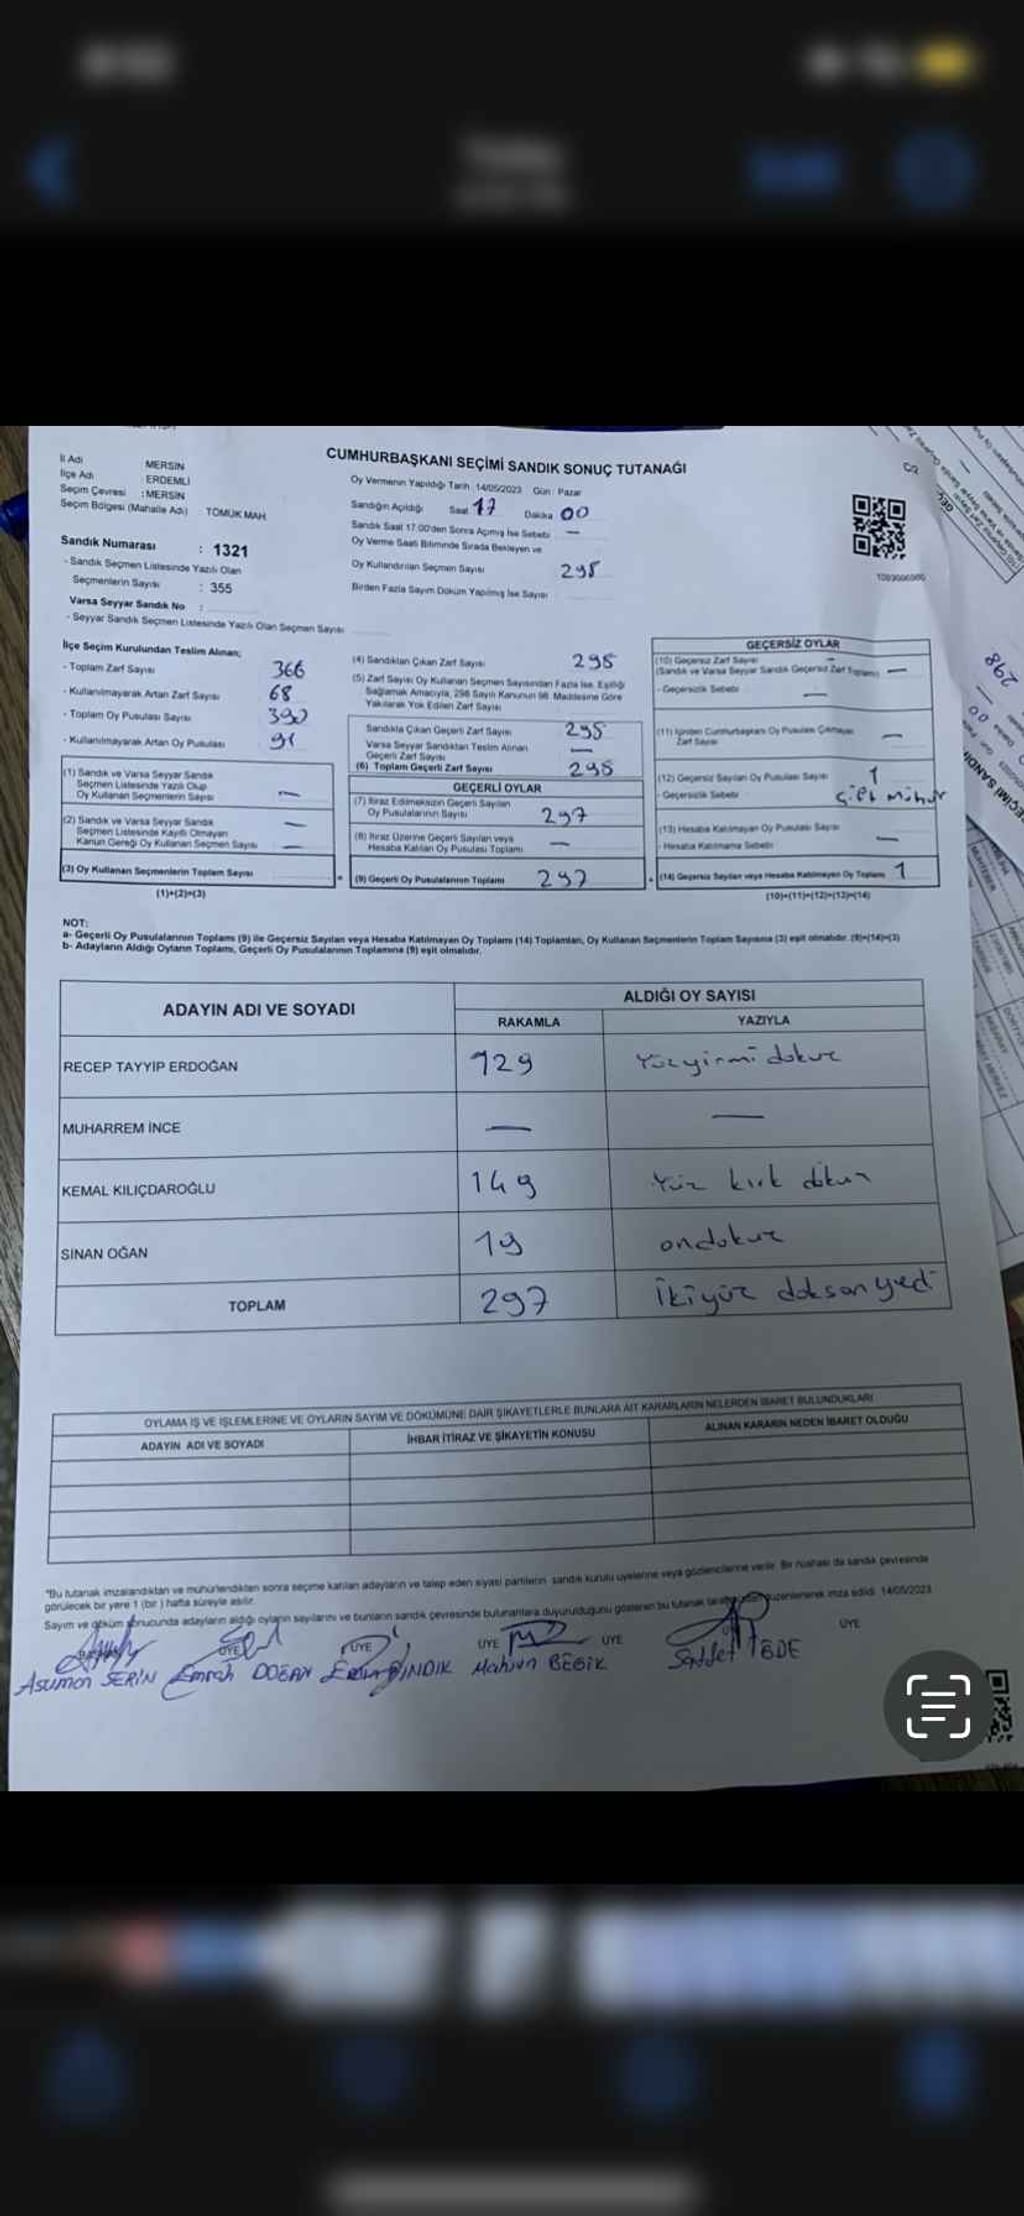 CUMHURBAŞKANI SEÇİMİ SANDIK SONUÇ TUTANAĞI
C/2
İl Adı : MERSİN
İlçe Adı : ERDEMLİ
Seçim Çevresi : MERSİN
Seçim Bölgesi (Mahalle Adı) : TÖMÜK MAH.
Sandık Numarası : 1321
- Sandık Seçmen Listesinde Yazılı Olan
Seçmenlerin Sayısı : 355
Varsa Seyyar Sandık No :
- Seyyar Sandık Seçmen Listesinde Yazılı Olan Seçmen Sayısı
Oy Vermenin Yapıldığı Tarih : 14/05/2023 Gün : Pazar
Sandığın Açıldığı Saat 17 Dakika 00
Sandık Saat 17.00'den Sonra Açılmış İse Sebebi —
Oy Verme Saati Bitiminde Sırada Bekleyen ve
Oy Kullandırılan Seçmen Sayısı 298
Birden Fazla Sayım Döküm Yapılmış İse Sayısı
İlçe Seçim Kurulundan Teslim Alınan;
- Toplam Zarf Sayısı 366
- Kullanılmayarak Artan Zarf Sayısı 68
- Toplam Oy Pusulası Sayısı 390
- Kullanılmayarak Artan Oy Pusulası 91
(1) Sandık ve Varsa Seyyar Sandık
Seçmen Listesinde Yazılı Olup
Oy Kullanan Seçmenlerin Sayısı —
(2) Sandık ve Varsa Seyyar Sandık
Seçmen Listesinde Kayıtlı Olmayan
Kanun Gereği Oy Kullanan Seçmen Sayısı —
(3) Oy Kullanan Seçmenlerin Toplam Sayısı
(1)+(2)=(3)
(4) Sandıktan Çıkan Zarf Sayısı 298
(5) Zarf Sayısı Oy Kullanan Seçmen Sayısından Fazla İse, Eşitliği
Sağlamak Amacıyla, 298 Sayılı Kanunun 98. Maddesine Göre
Yakılarak Yok Edilen Zarf Sayısı
Sandıkta Çıkan Geçerli Zarf Sayısı 298
Varsa Seyyar Sandıktan Teslim Alınan
Geçerli Zarf Sayısı —
(6) Toplam Geçerli Zarf Sayısı 298
GEÇERLİ OYLAR
(7) İtiraz Edilmeksizin Geçerli Sayılan
Oy Pusulalarının Sayısı 297
(8) İtiraz Üzerine Geçerli Sayılan veya
Hesaba Katılan Oy Pusulası Toplamı —
(9) Geçerli Oy Pusulalarının Toplamı 297
GEÇERSİZ OYLAR
(10) Geçersiz Zarf Sayısı
(Sandık ve Varsa Seyyar Sandık Geçersiz Zarf Toplamı) —
- Geçersizlik Sebebi —
(11) İçinden Cumhurbaşkanı Oy Pusulası Çıkmayan
Zarf Sayısı —
(12) Geçersiz Sayılan Oy Pusulası Sayısı 1
- Geçersizlik Sebebi Çift mühür
(13) Hesaba Katılmayan Oy Pusulası Sayısı
- Hesaba Katılmama Sebebi —
(14) Geçersiz Sayılan veya Hesaba Katılmayan Oy Toplamı 1
(10)+(11)+(12)+(13)=(14)
NOT:
a- Geçerli Oy Pusulalarının Toplamı (9) ile Geçersiz Sayılan veya Hesaba Katılmayan Oy Toplamı (14) Toplamları, Oy Kullanan Seçmenlerin Toplam Sayısına (3) eşit olmalıdır. (9)+(14)=(3)
b- Adayların Aldığı Oyların Toplamı, Geçerli Oy Pusulalarının Toplamına (9) eşit olmalıdır.
ADAYIN ADI VE SOYADI ALDIĞI OY SAYISI
RAKAMLA YAZIYLA
RECEP TAYYİP ERDOĞAN 129 Yüzyirmi dokuz
MUHARREM İNCE — —
KEMAL KILIÇDAROĞLU 149 Yüz kırk dokuz
SİNAN OĞAN 19 ondokuz
TOPLAM 297 İkiyüz doksan yedi
OYLAMA İŞ VE İŞLEMLERİNE VE OYLARIN SAYIM VE DÖKÜMÜNE DAİR ŞİKAYETLERLE BUNLARA AİT KARARLARIN NELERDEN İBARET BULUNDUKLARI
ADAYIN ADI VE SOYADI İHBAR İTİRAZ VE ŞİKAYETİN KONUSU ALINAN KARARIN NEDEN İBARET OLDUĞU
*Bu tutanak imzalandıktan ve mühürlendikten sonra seçime katılan adayların ve talep eden siyasi partilerin sandık kurulu üyelerine veya gözlemcilerine verilir. Bir nüshası da sandık çevresinde
görülecek bir yere 1 (bir) hafta süreyle asılır.
Sayım ve döküm sonucunda adayların aldığı oyların sayılarını ve bunların sandık çevresinde bulunanlara duyurulduğunu gösteren bu tutanak tarafımızdan düzenlenerek imza edildi. 14/05/2023
ÜYE ÜYE ÜYE ÜYE ÜYE
Asuman SERİN Emrah DOĞAN FINDIK BEBİK TEDE
298
00